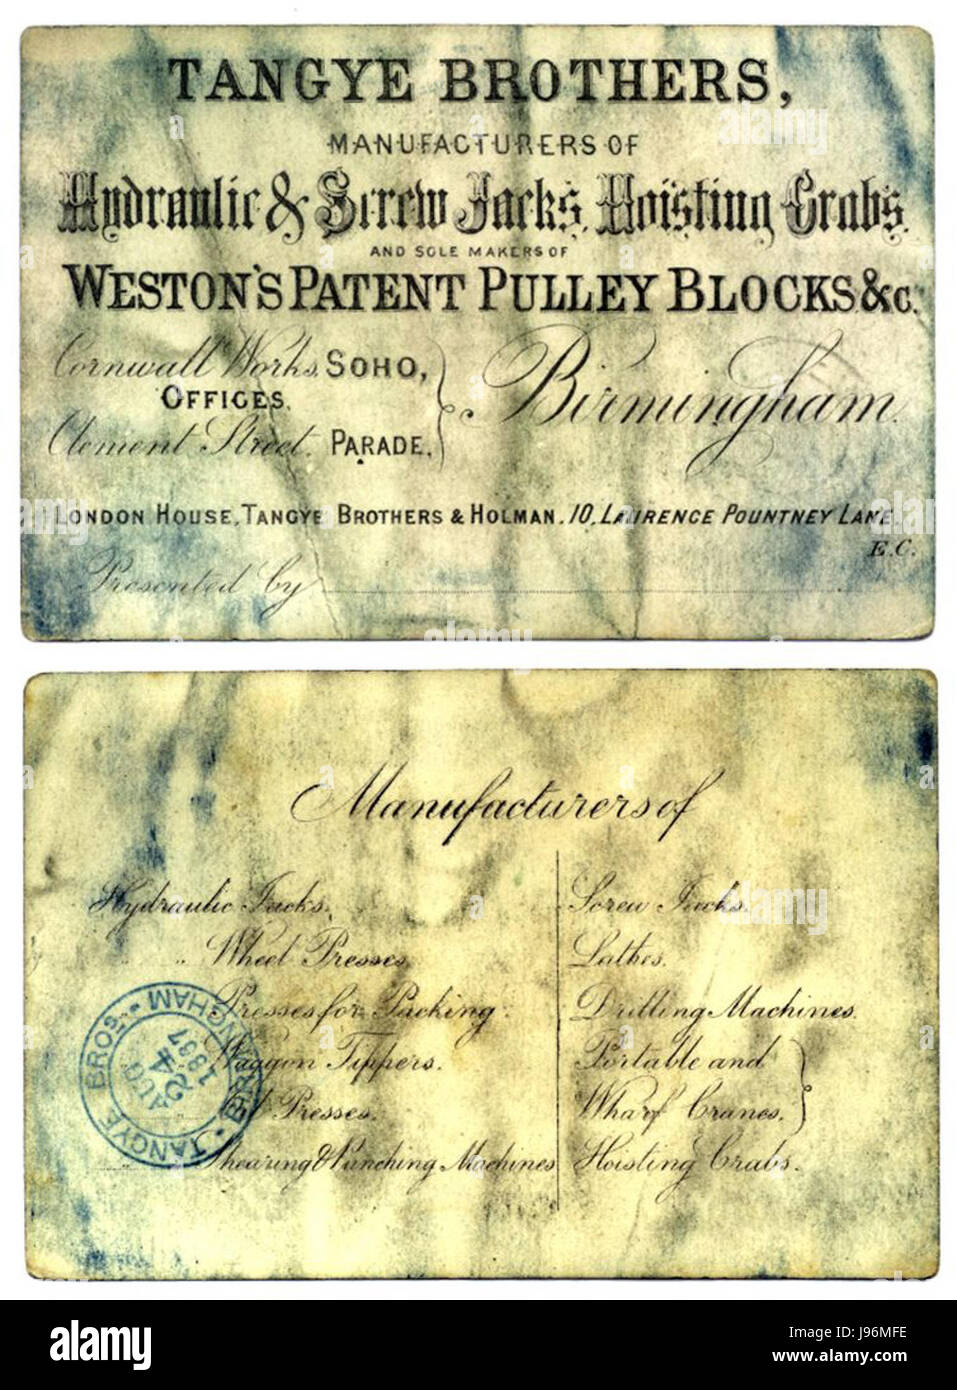 TANGYE BROTHERS,
MANUFACTURERS OF
Hydraulic & Screw Jacks, Hoisting Crabs,
AND SOLE MAKERS OF
WESTON'S PATENT PULLEY BLOCKS &c.
Cornwall Works, SOHO,
OFFICES,
Clement Street, PARADE,
Birmingham.
LONDON HOUSE, TANGYE BROTHERS & HOLMAN, 10, LAURENCE POUNTNEY LANE,
E.C.
Presented by
Manufacturers of
Hydraulic Jacks.
" " Wheel Presses
Presses for Packing
Waggon Tippers.
Presses.
Shearing & Punching Machines
Screw Jacks.
Lathes.
Drilling Machines.
Portable and
Wharf Cranes.
Hoisting Crabs.
TANGYE BROS. BIRMINGHAM
AUG
1867
alamy
Image ID: J96MFE
www.alamy.com